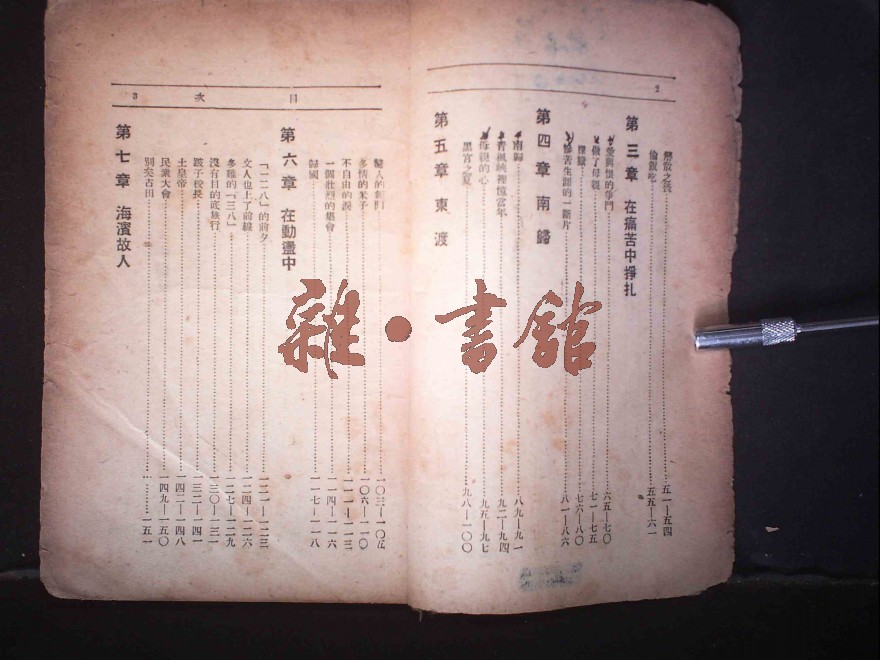 2
解放之後……五一—五四
偷飯吃……五五—六一
第三章 在痛苦中掙扎
愛與恨的爭鬥……六五—七〇
做了母親……七一—七五
探獄……七六—八〇
慘苦生涯的一斷片……八一—八六
第四章 南歸
南歸……八九—九一
青楓峽裡憶當年……九二—九四
母親的心……九五—九七
第五章 東渡
黑宮之夏……九八—一〇〇
目次 3
驚人的新聞……一〇三—一〇五
多情的米子……一〇六—一一〇
不自由的淚……一一一—一一三
一個壯烈的集會……一一四—一一六
歸國……一一七—一一八
第六章 在動盪中
「一二八」的前夕……一二一—一二三
文人也上了前線……一二四—一二六
多難的「三八」……一二七—一二九
沒有目的底旅行……一三〇—一三一
跛子校長……一三二—一四一
土皇帝……一四二—一四八
民衆大會……一四九—一五〇
別矣古田……一五一
第七章 海濱故人
雜·書館